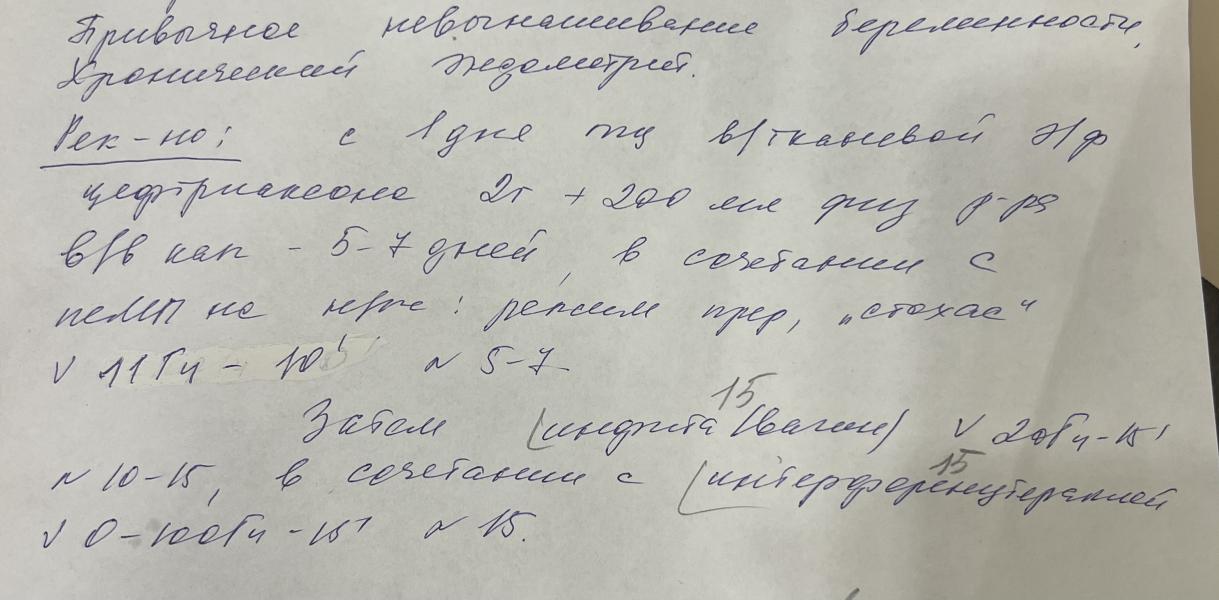 Привычное невынашивание беременности,
Хронический эндометрит.
Рек-но: с 1 дня мц в/тканевой э/ф
цефтриаксона 2г + 200 мл физ р-ра
в/в кап - 5-7 дней, в сочетании с
пеМП на н/жив: режим прер, „стохас"
ν 11Гц - 10' N 5-7
15
Затем (индита (вагин) ν 20Гц-15'
15
N 10-15, в сочетании с (интерференцтерапией
ν 0-100Гц-15' N 15.